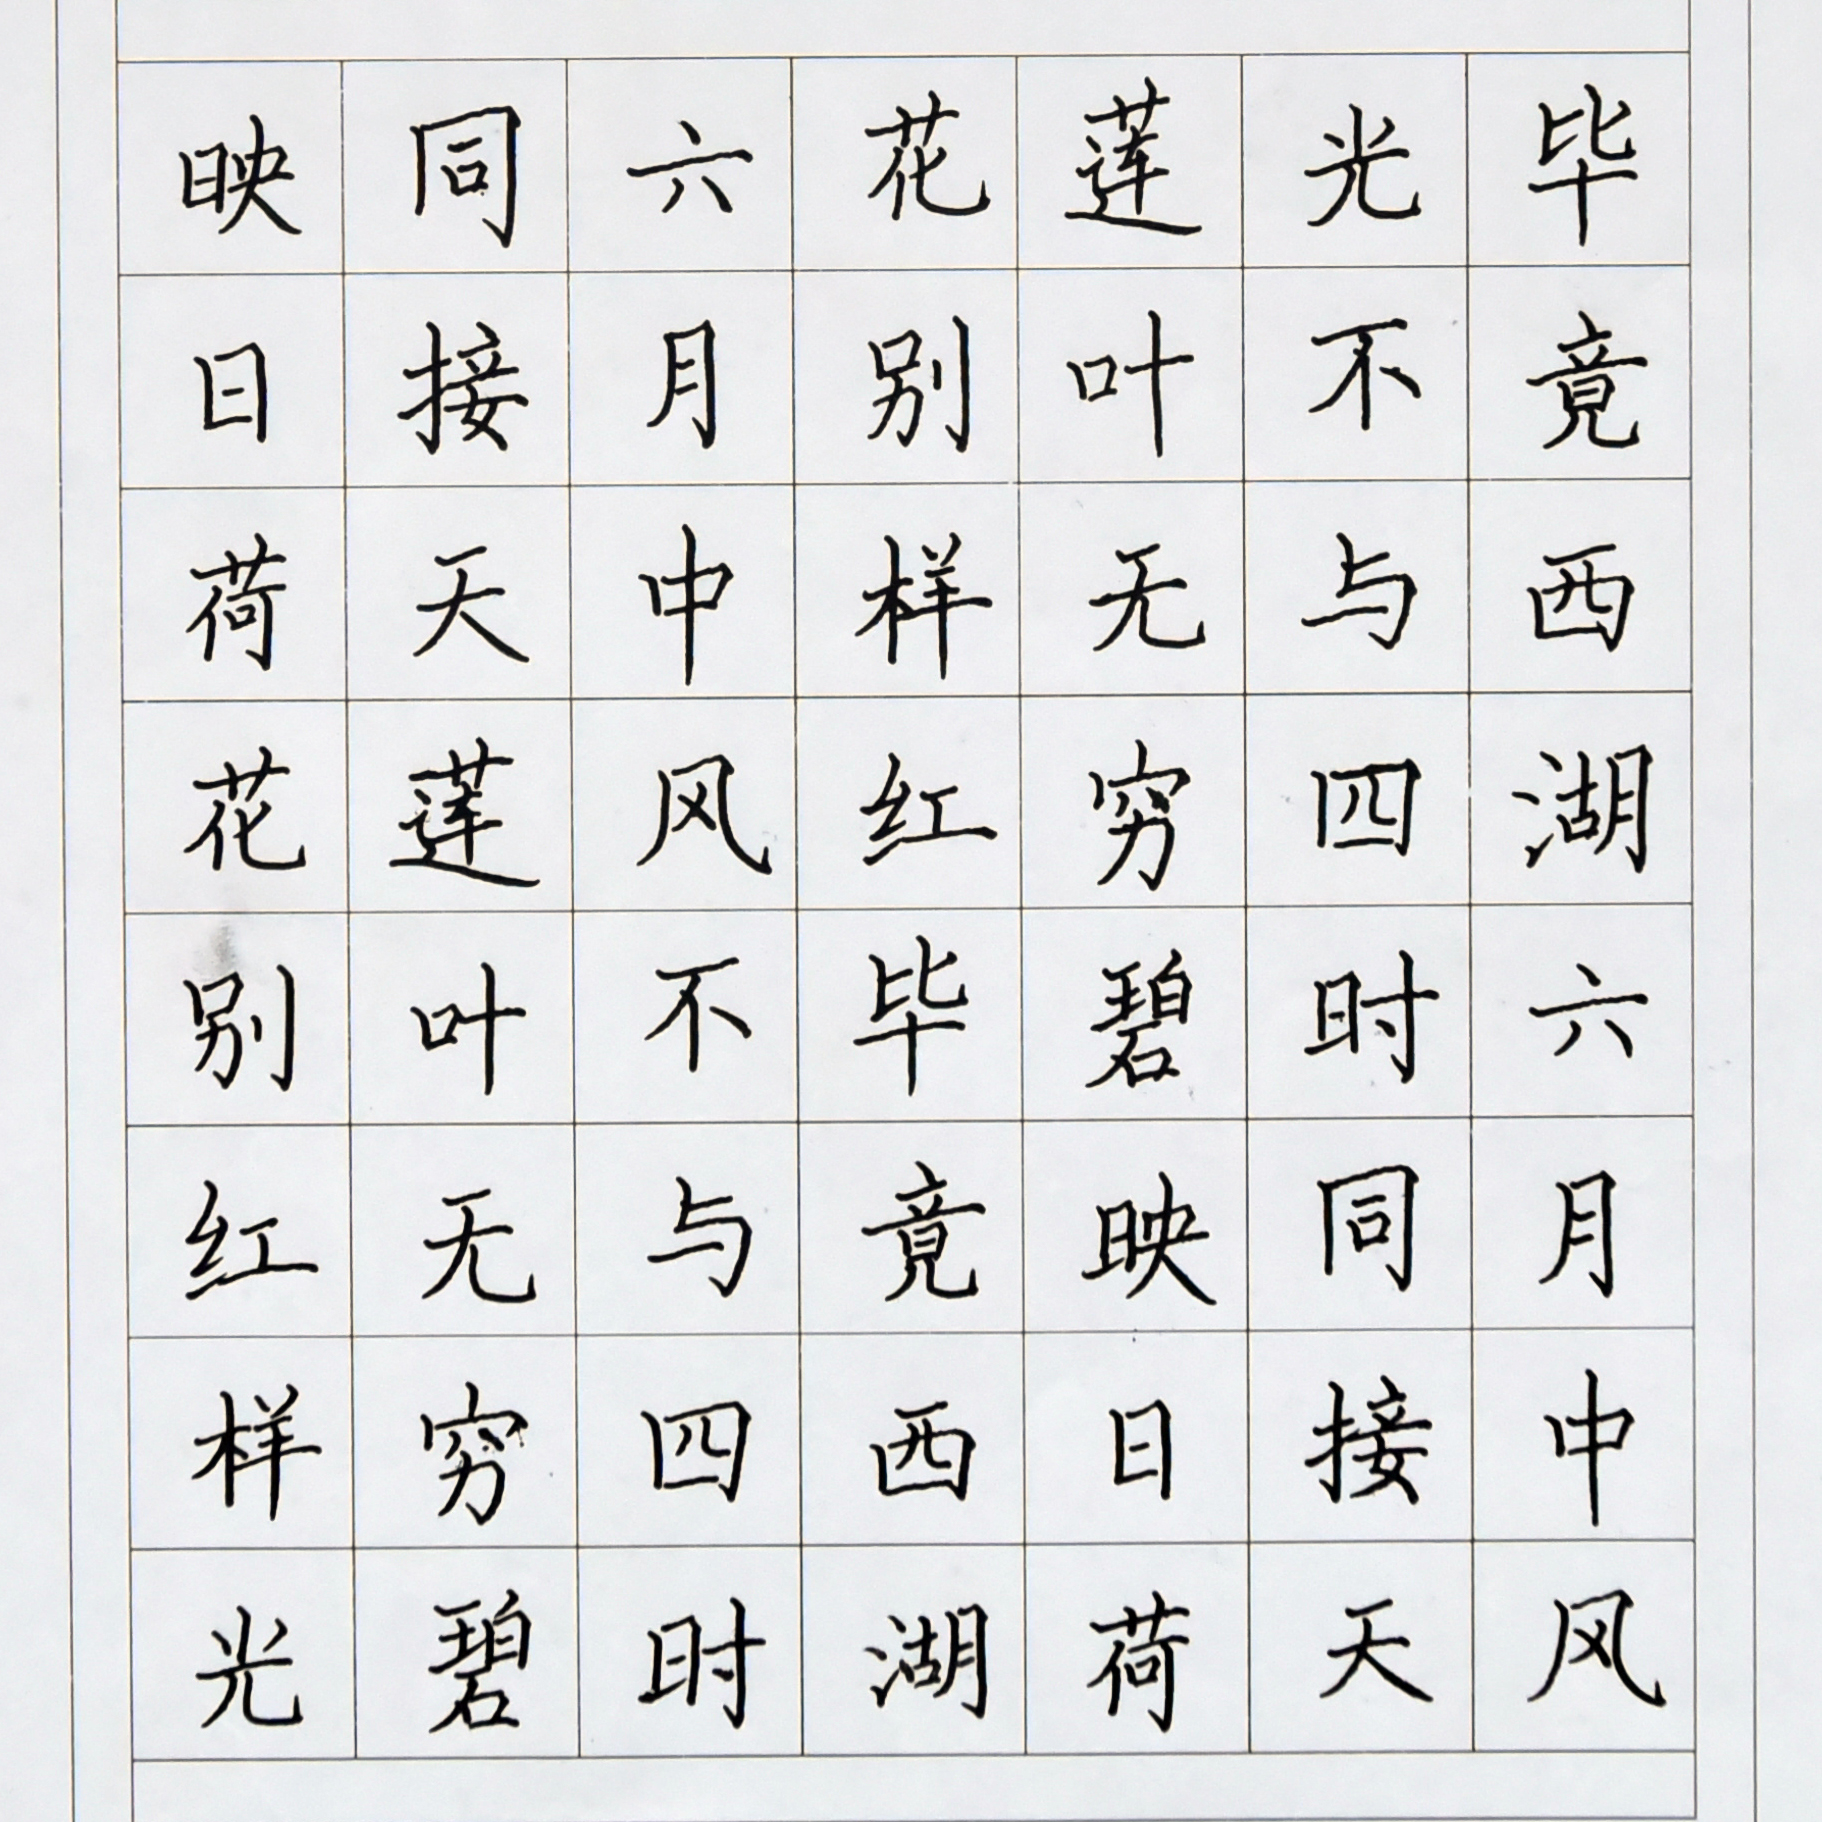 毕竟西湖六月中风
光不与四时同接天
莲叶无穷碧映日荷
花别样红毕竟西湖
六月中风不与四时
同接天莲叶无穷碧
映日荷花别红样光